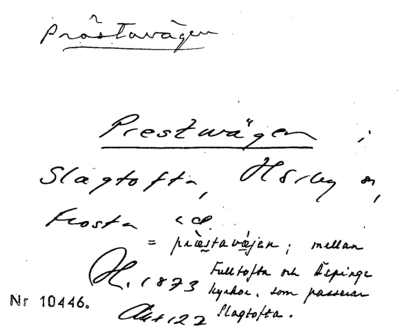 Prästavägen
Prestvägen i
Slagtofta, Hörby sn,
Frosta hd
= prästavæjan; mellan
Fulltofta och Äspinge
kyrkor, som passerar
Slagtofta.
H. 1873
Nr 10446.